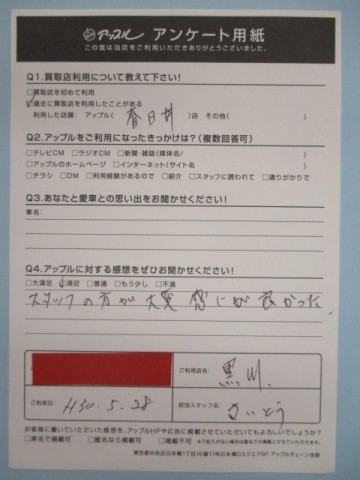 アップル アンケート用紙
この度は当店をご利用いただきありがとうございました。
Q1.買取店利用について教えて下さい!
□買取店を初めて利用
☑過去に買取店を利用したことがある
利用した店舗:アップル( 春日井 )店 その他( )
Q2.アップルをご利用になったきっかけは?(複数回答可)
□テレビCM □ラジオCM □新聞・雑誌(媒体名/ )
□アップルのホームページ □インターネット(サイト名 )
□チラシ □DM □利用経験があるので □紹介 □スタッフに誘われて □通りがかりで
Q3.あなたと愛車との思い出をお聞かせください!
車名:
Q4.アップルに対する感想をぜひお聞かせください!
□大満足 ☑満足 □普通 □もう少し □不満
スタッフの方が大変感じが良かった
ご利用店名: 黒川
ご利用日: H30.5.28
担当スタッフ名: さいとう
お客様に書いていただいた感想を、アップルHPや広告に掲載させていただいてもよろしいでしょうか?
□実名で掲載可 □匿名なら掲載可 □掲載不可
アップルチェーン本部